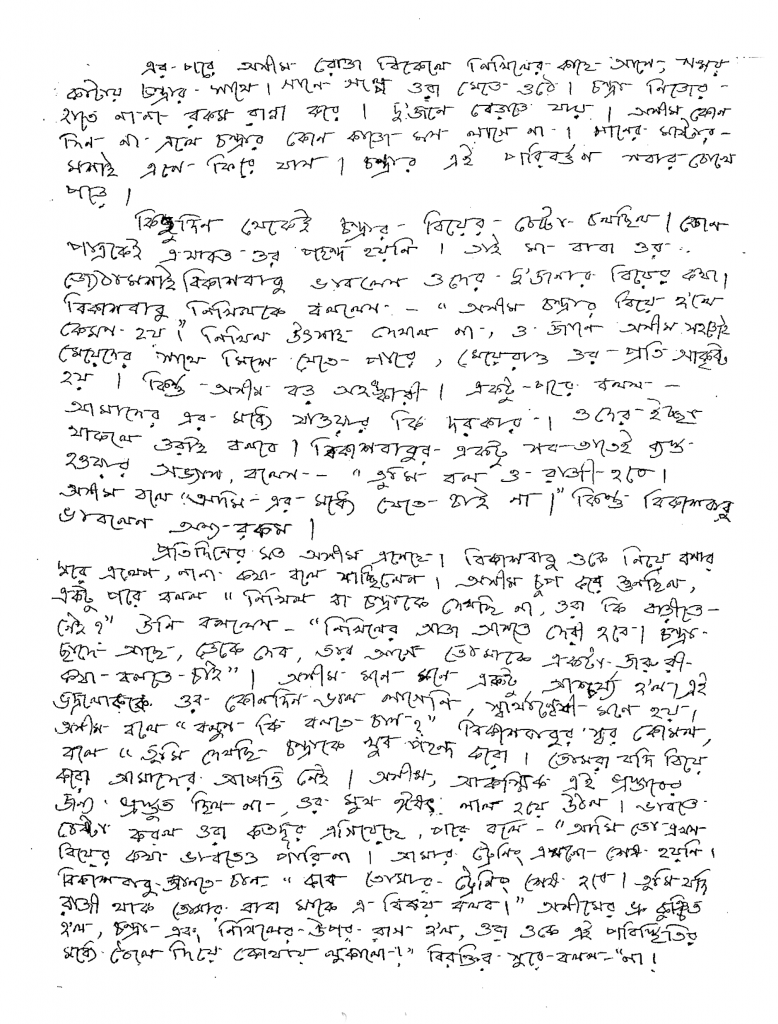 এর পরে অসীম রোজ বিকেলে নিখিলের কাছে আসে, সময়
কাটায় চন্দ্রার সাথে। মাসে মাসে ওরা খেতে ওঠে। চন্দ্রা নিজের
হাতে নানা রকম রান্না করে। দু'জনে বেড়াতে যায়। অসীম কোন
দিন না এলে চন্দ্রার কোন কাজে মন লাগে না। গানের মাষ্টার
মশাই এসে ফিরে যান। চন্দ্রার এই পরিবর্তন সবার চোখে
পড়ে।
কিছুদিন থেকেই চন্দ্রার বিয়ের চেষ্টা চলছিল। কোন
পাত্রকেই এযাবত ওর পছন্দ হয়নি। তাই মা বাবা ওর
জ্যেঠামশাই বিকাশবাবু ভাবলেন ওদের দু'জনার বিয়ের কথা।
বিকাশবাবু নিখিলকে বললেন - "অসীম চন্দ্রার বিয়ে হ'লে
কেমন হয়"। নিখিল উৎসাহ দেখাল না, ও জানে অসীম সহজেই
মেয়েদের সাথে মিশে যেতে পারে, মেয়েরাও ওর প্রতি আকৃষ্ট
হয়। কিন্তু অসীম বড় অহঙ্কারী। একটু পরে বলল -
আমাদের এর মধ্যে যাওয়ার কি দরকার। ওদের ইচ্ছা
থাকলে ওরাই বলবে। বিকাশবাবুর একটু সব তাতেই ব্যস্ত
হওয়ার অভ্যাস, বলেন - "তুমি বল ও রাজী হবে।
অসীম বলে "আমি এর মধ্যে যেতে চাই না।" কিন্তু বিকাশবাবু
ভাবলেন অন্য রকম।
প্রতিদিনের মত অসীম এসেছে। বিকাশবাবু ওকে নিয়ে বসার
ঘরে এলেন, নানা কথা বলে যাচ্ছিলেন। অসীম চুপ করে শুনছিল,
একটু পরে বলল "নিখিল বা চন্দ্রাকে দেখছি না, ওরা কি বাড়ীতে
নেই?" উনি বললেন - "নিখিলের আজ আসতে দেরী হবে। চন্দ্রা
ছাদে আছে, ডেকে দেব, তার আগে তোমাকে একটা জরুরী
কথা বলতে চাই"। অসীম মনে মনে একটু আশ্চর্য্য হ'ল, এই
ভদ্রলোককে ওর কোনদিন ভাল লাগেনি, স্বার্থান্বেষী মনে হয়।
অসীম বলে "বলুন কি বলতে চান?" বিকাশবাবুর স্বর কোমল,
বলে "তুমি দেখছি চন্দ্রাকে খুব পছন্দ করো। তোমরা যদি বিয়ে
করো আমাদের আপত্তি নেই। অসীম, আকস্মিক এই প্রস্তাবের
জন্য প্রস্তুত ছিল না, ওর মুখ ঈষৎ লাল হয়ে উঠল। ভাবতে
চেষ্টা করল ওরা কতদূর এগিয়েছে, পরে বলে - "আমি তো এখন
বিয়ের কথা ভাবতেও পারিনা। আমার ট্রেনিং এখনো শেষ হয়নি।
বিকাশবাবু জানতে চান "কবে তোমার ট্রেনিং শেষ হবে। তুমি যদি
রাজী থাক তোমার বাবা মাকে এ বিষয় বলব।" অসীমের ভ্রু কুঞ্চিত
হ'ল, চন্দ্রা এবং নিখিলের উপর রাগ হ'ল, ওরা ওকে এই পরিস্থিতির
মধ্যে ঠেলে দিয়ে কোথায় লুকালো!" বিরক্তির সুরে বলল - "না।